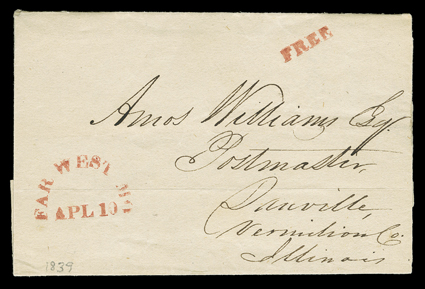 FREE
Amos Williams Esq.
Postmaster,
Danville,
Vermilion Co.
Illinois
FAR WEST Mo
APL 19
1839